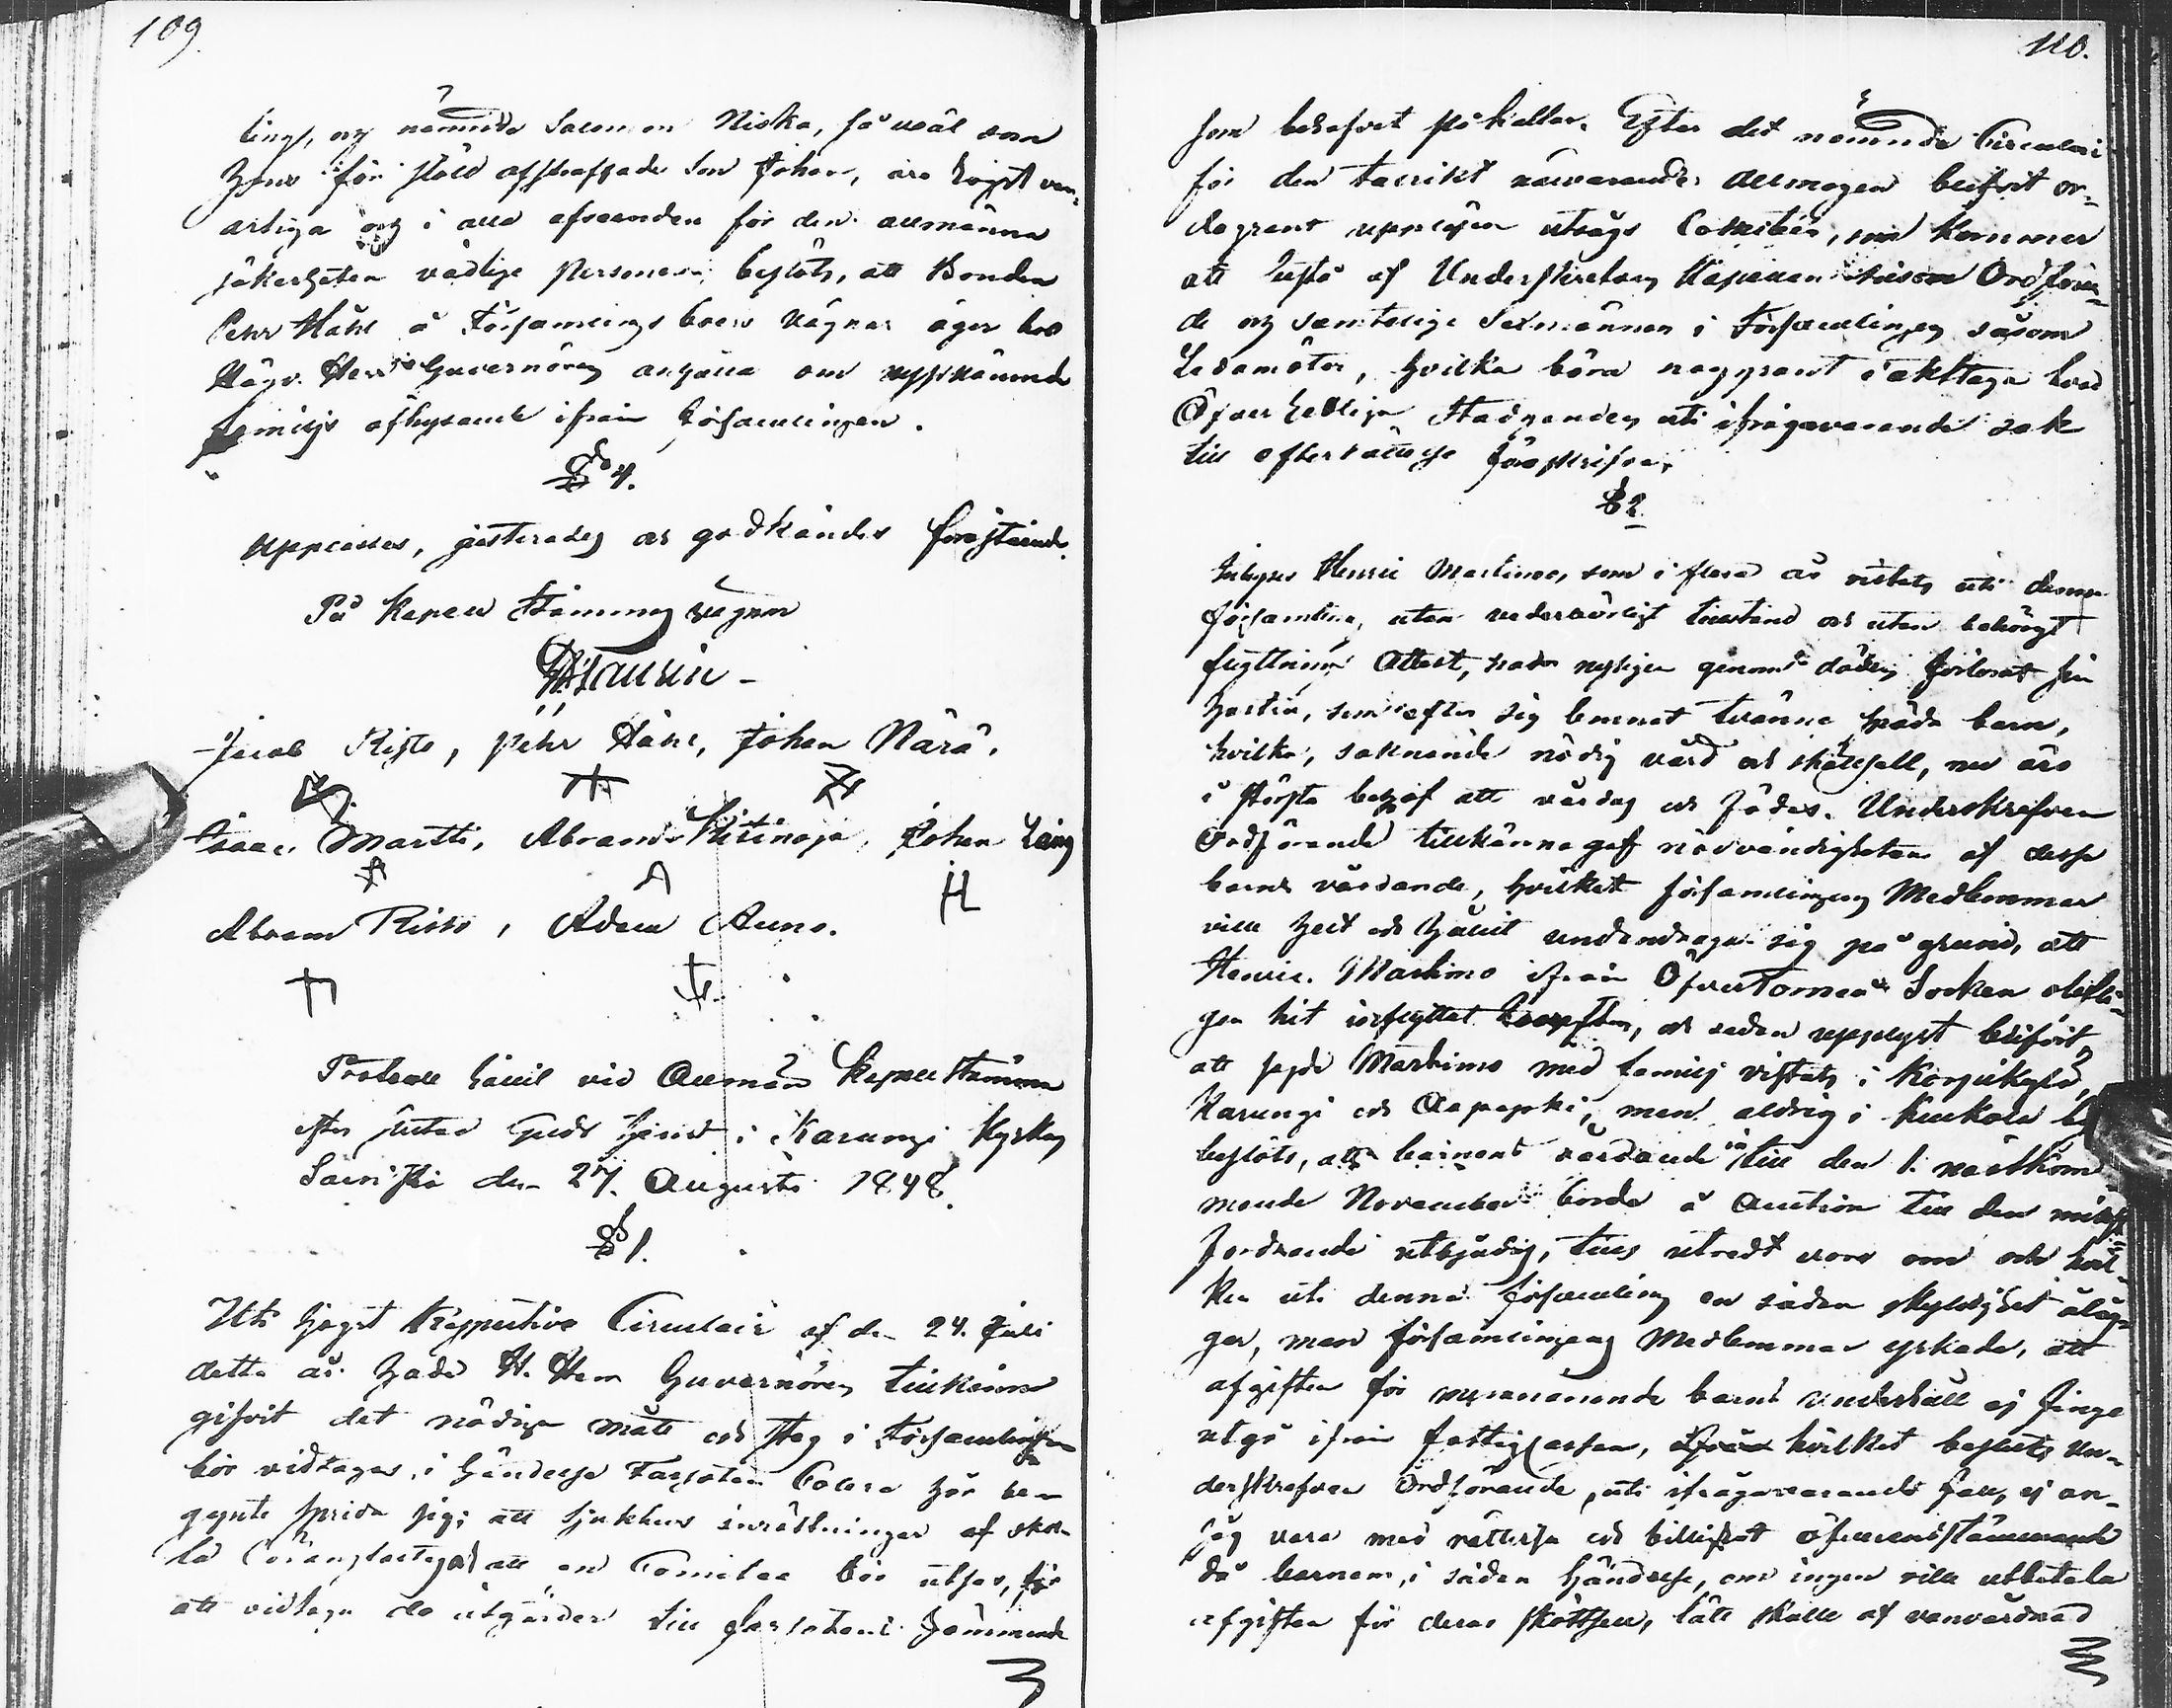 109.
ling, och nämnde Salomon Niska, så väl som
hans för stöld afstraffade Son Johan, äro högst van-
artiga och i alla afseenden för den allmänna
säkerheten vådlige Personer; beslöts, att Bonden
Pehr Hähl å Församlings boers vägnar äger hos
Höga Herr Guvernören anhålla om uppnämnde
familjs afhysande ifrån Församlingen.
§ 4.
Upplästes, justerades och godkändes föreståend.
På Kapell Stämmans vägnar
Jacob Risto, Pehr Hähl, Johan Närä,
Isaac Martti, Abram Kitinoja, Johan Lang
Abram Risto, Adam Auno.
Protocoll hållit vid Allmän Kapell Stämma
efter slutad Guds tjenst i Karungi Kyrka
den 27. Augusti 1848.
§ 1.
Uti högst Respective Circulair af den 24. Juli
detta år hade H. Herr Guvernören tillkänna
gifvit det nödiga mått och steg i Församlingen
bör vidtagas, i händelse Farsoten Colera här be-
gynte sprida sig; att sjukhus inrättningar
att en Comitee bör utses, för
att vidtaga de åtgärder till farsotens hämmande
110.
som behofvet påkallar. Efter det nämnde Circulair
för den talrikt närvarande Allmogen blifvit or-
dagrant uppläsen utsågs Comitén, som kommer
att bestå af Underskrefven Kapellan såsom Ordföran-
de och samtelige Sexmännen i Församlingen såsom
Ledamöter, hvilka böra noggrant iakttaga hvad
Öfverhetliga Stadganden uti ifrågavarande sak
till efterrättelse föreskrifva.
§ 2.
Inhyses Henric Markimo, som i flera år vistats uti denna
församling, utan vederbörligt tillstånd och utan behörigt
flyttnings Attest, hade nyligen genom döden förlorat sin
hustru, som efter sig lemnat tvänne späda barn,
hvilka, saknande nödig vård och skötsell, nu äro
i största behof att vårdas och födas. Underskrefven
Ordförande tillkännagaf nödvändigheten af desse
barns vårdande, hvilket församlingens Medlemmar
ville helt och hållit undandraga sig på grund, att
Henric Markimo ifrån Öfver Torneå Socken olofli-
gen hit inflyttat, och sedan upplyst blifvit,
att sagde Markimo med familj vistats i Korpikylä,
Karungi och Aapajoki, men aldrig i Kuckola by
beslöts, att barnens vårdande till den 1. nästkom-
mande November borde å Auction till den minst
fordrande utbjudas, tills utredt vore om och hvil-
ken uti denna församling en sådan skyldighet åläg-
ger, men församlingens Medlemmar yrkade, att
afgiften för nyssnämnde barns underhåll ej finge
utgå ifrån fattigkassan, hvilket besluts Un-
derskrefven Ordförande, uti ifrågavarande fall, ej an-
såg vara med rättvisa och billighet öfverensstämmande
då barnen, i sådan händelse, om ingen ville utbetala
afgiften för deras skötsell, lätt skulle af vanvårdnad